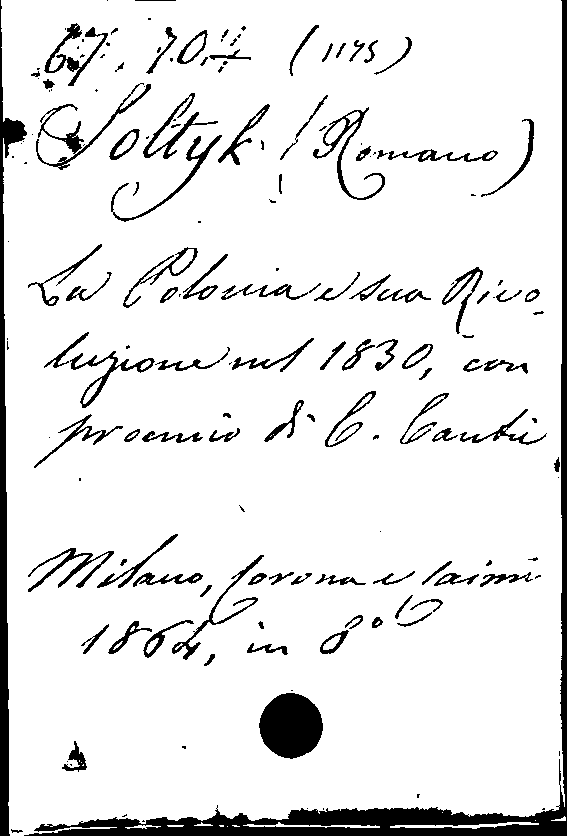 67. 70.
(1175)
Soltyk (Romano)
La Polonia e sua Rivo-
luzione nel 1830, con
proemio di C. Cantù
Milano, Corona e Caimi
1864, in 8°